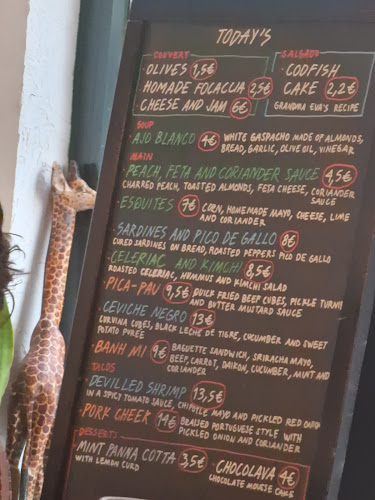 TODAY'S
COUVERT
OLIVES 1,5€
HOMADE FOCACCIA 2,5€
CHEESE AND JAM 6€
SALGADO
CODFISH
CAKE 2,2€
GRANDMA EVA'S RECIPE
SOUP
AJO BLANCO 4€ WHITE GASPACHO MADE OF ALMONDS,
BREAD, GARLIC, OLIVE OIL, VINEGAR
MAIN
PEACH, FETA AND CORIANDER SAUCE 4,5€
CHARRED PEACH, TOASTED ALMONDS, FETA CHEESE, CORIANDER
SAUCE
ESQUITES 7€ CORN, HOMEMADE MAYO, CHEESE, LIME
AND CORIANDER
SARDINES AND PICO DE GALLO 8€
CURED SARDINES ON BREAD, ROASTED PEPPERS PICO DE GALLO
CELERIAC AND KIMCHI 8,5€
ROASTED CELERIAC, HUMMUS AND KIMCHI SALAD
PICA-PAU 9,5€ DUCK FRIED BEEF CUBES, PICKLE TURNIP
AND BUTTER MUSTARD SAUCE
CEVICHE NEGRO 13€
CORVINA CUBES, BLACK LECHE DE TIGRE, CUCUMBER AND SWEET
POTATO PUREE
BANH MI 9€ BAGUETTE SANDWICH, SRIRACHA MAYO,
BEEF, CARROT, DAIKON, CUCUMBER, MINT AND
CORIANDER
TACOS
DEVILLED SHRIMP 13,5€
IN A SPICY TOMATO SAUCE, CHIPOTLE MAYO AND PICKLED RED ONION
PORK CHEEK 14€ BRAISED PORTUGUESE STYLE WITH
PICKLED ONION AND CORIANDER
DESSERTS
MINT PANNA COTTA 3,5€
WITH LEMON CURD
CHOCOLAVA 4€
CHOCOLATE MOUSSE CAKE